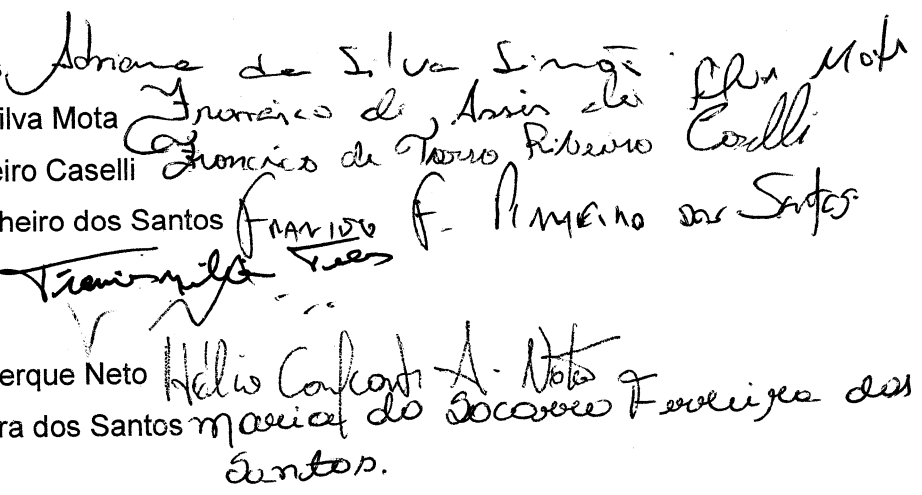 Adriana da Silva Simão
ilva Mota Francisco de Assis da Silva Mota
eiro Caselli Francisco de Tasso Ribeiro Caselli
heiro dos Santos Francisco F. Pinheiro dos Santos
Francisnilde Teles
erque Neto Hélio Cavalcanti A. Neto
ra dos Santos Maria do Socorro Ferreira dos
Santos.